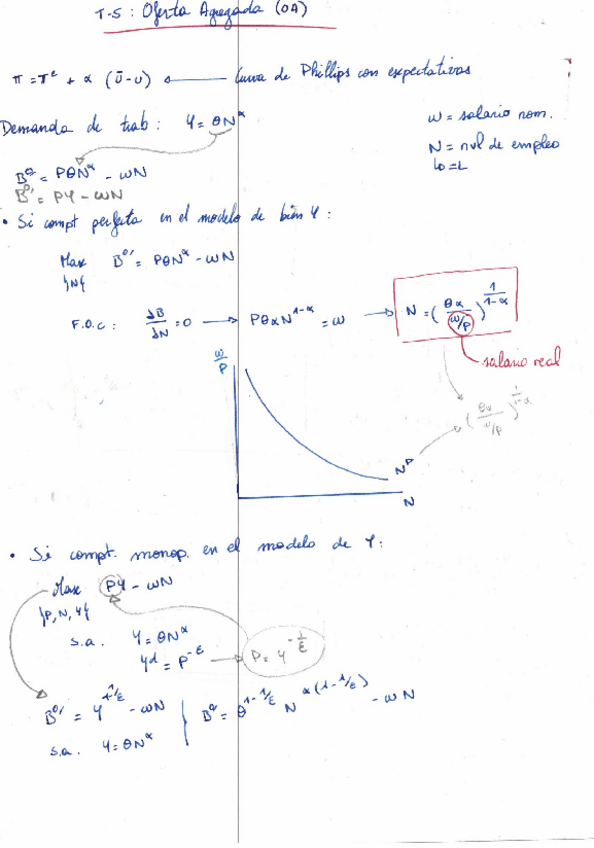 T-5 : Oferta Agregada (OA)
π = π^e + α (ū - u) ← Curva de Phillips con expectativas
Demanda de trab : Y = θN^α
w = salario nom.
N = nvl de empleo
↳ = L
B^o' = PθN^α - wN
B^o' = PY - wN
• Si compt perfecta en el modelo de bien Y :
Max B^o' = PθN^α - wN
{N}
F.O.C : dB/dN = 0 → PθαN^1-α = w → N = (θα / w/P)^1/1-α
salario real
w/P
(θα / w/P)^1/1-α
N^D
N
• Si compt. monop. en el modelo de Y :
Max PY - wN
{P, N, Y}
s.a. Y = θN^α
Y^d = P^-ε → P = Y^-1/ε
B^o' = Y^1-1/ε - wN | B^o = θ^1-1/ε N^α(1-1/ε) - wN
s.a. Y = θN^α